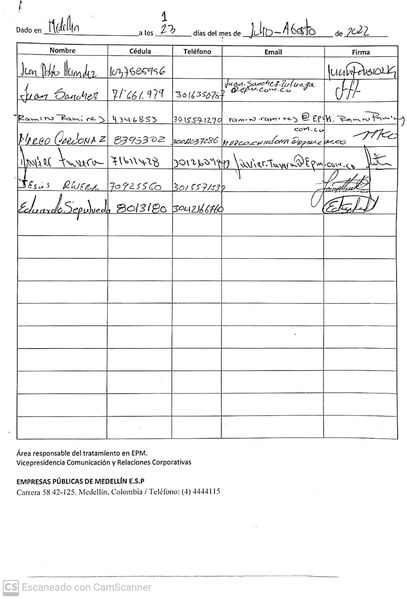 Dado en Medellin a los 1 23 días del mes de Julio-Agosto de 2022
Nombre Cédula Teléfono Email Firma
Juan Pablo 1037585956
Juan Sanchez 71'661.979 3016350757 juan.sanchez.
@epm.com.co
Ramiro Ramirez 4346853 3015541270 ramiro.ramirez@EPM. Ramiro Ramirez
com.co
Marco Cardona Z 8395302
Javier Tavera 71611428 Javier.Tavera@Epm.com.co
Jesus Rivera 70925560 3015571539
Eduardo Sepulveda 8013180 3042166760
Área responsable del tratamiento en EPM.
Vicepresidencia Comunicación y Relaciones Corporativas
EMPRESAS PÚBLICAS DE MEDELLÍN E.S.P
Carrera 58 42-125. Medellín, Colombia / Teléfono: (4) 4444115
CS Escaneado con CamScanner